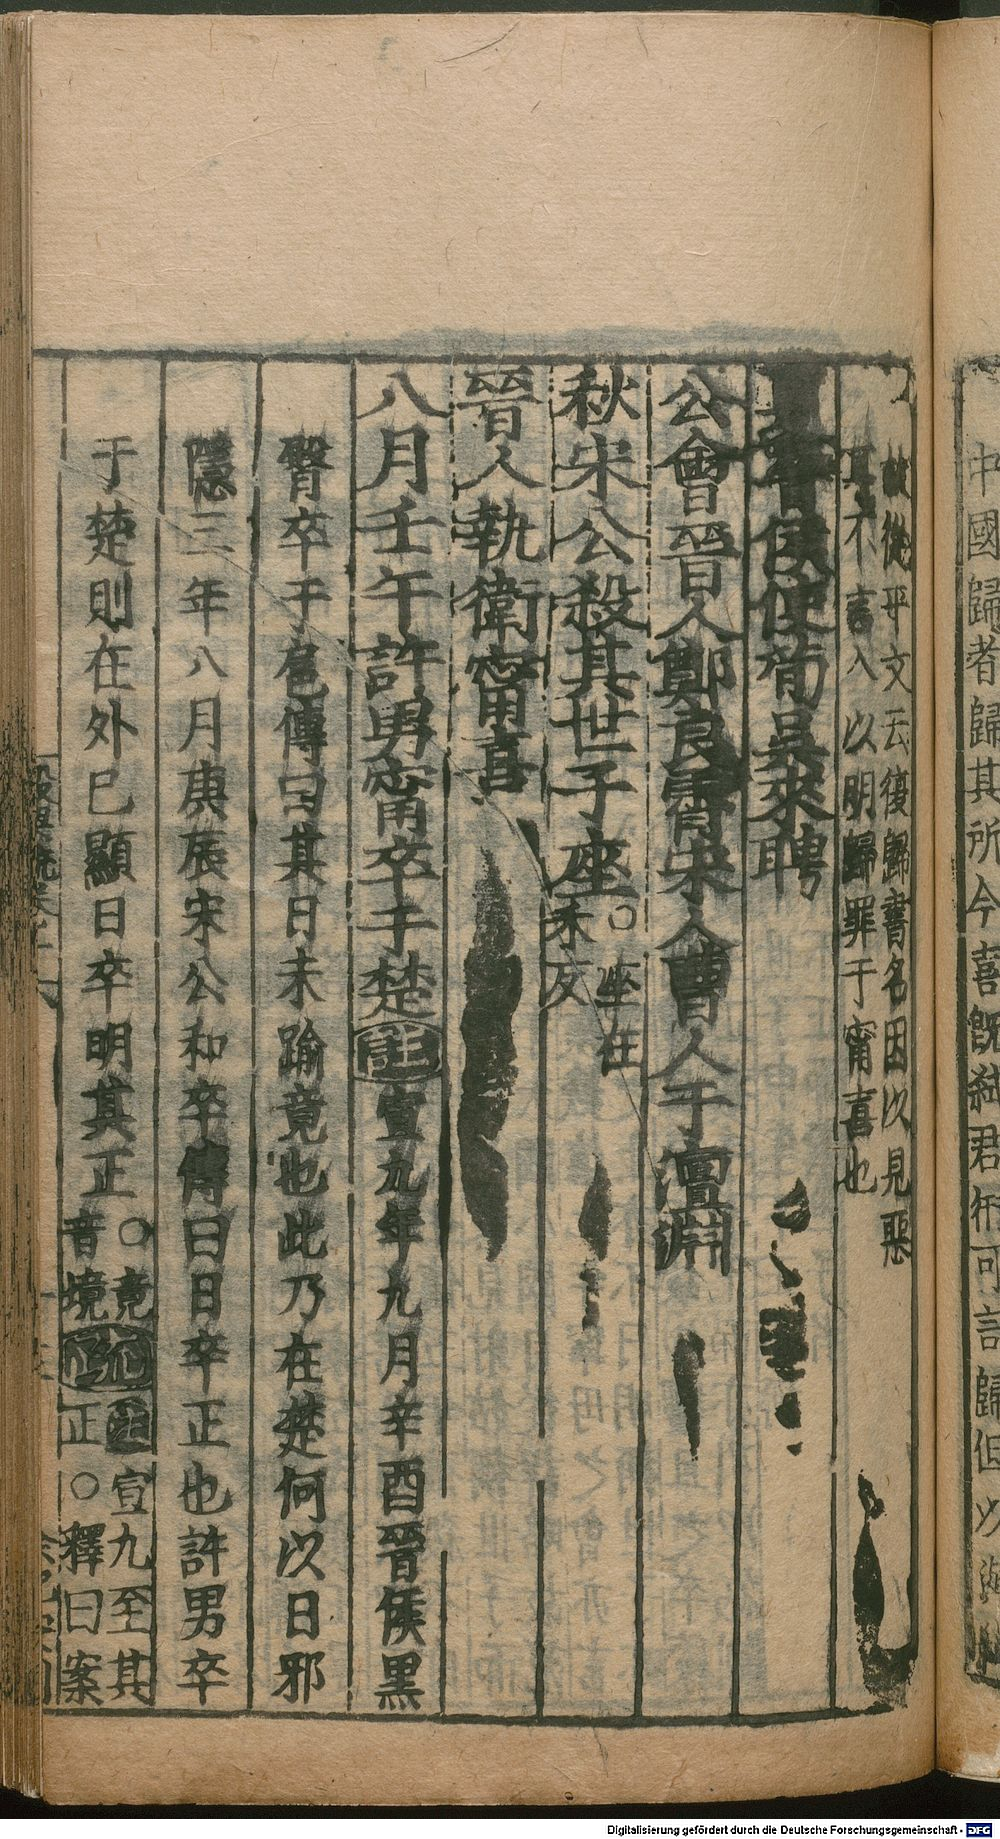 中國歸者歸其所今喜既弑君衎可言歸但以
故從平文云復歸書名因以見惡
其不言入以明歸罪于甯喜也
夏晉侯使荀吳來聘
公會晉人鄭良霄宋人曹人于澶淵
秋宋公殺其世子座○座在
禾反
晉人執衛甯喜
八月壬午許男甯卒于楚註宣九年九月辛酉晉侯黑
臀卒于扈傳曰其日未踰竟也此乃在楚何以日邪
隱三年八月庚辰宋公和卒傳曰日卒正也許男卒
于楚則在外已顯日卒明其正○竟
音境疏註宣九至其
正○釋曰案
Digitalisierung gefördert durch die Deutsche Forschungsgemeinschaft - DFG